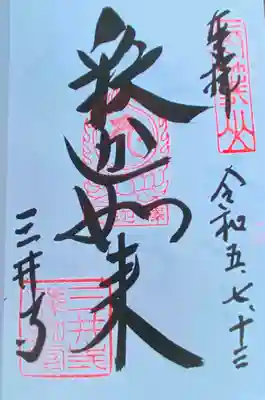 奉拝
令和五、七、十三
釈迦如来
三井寺